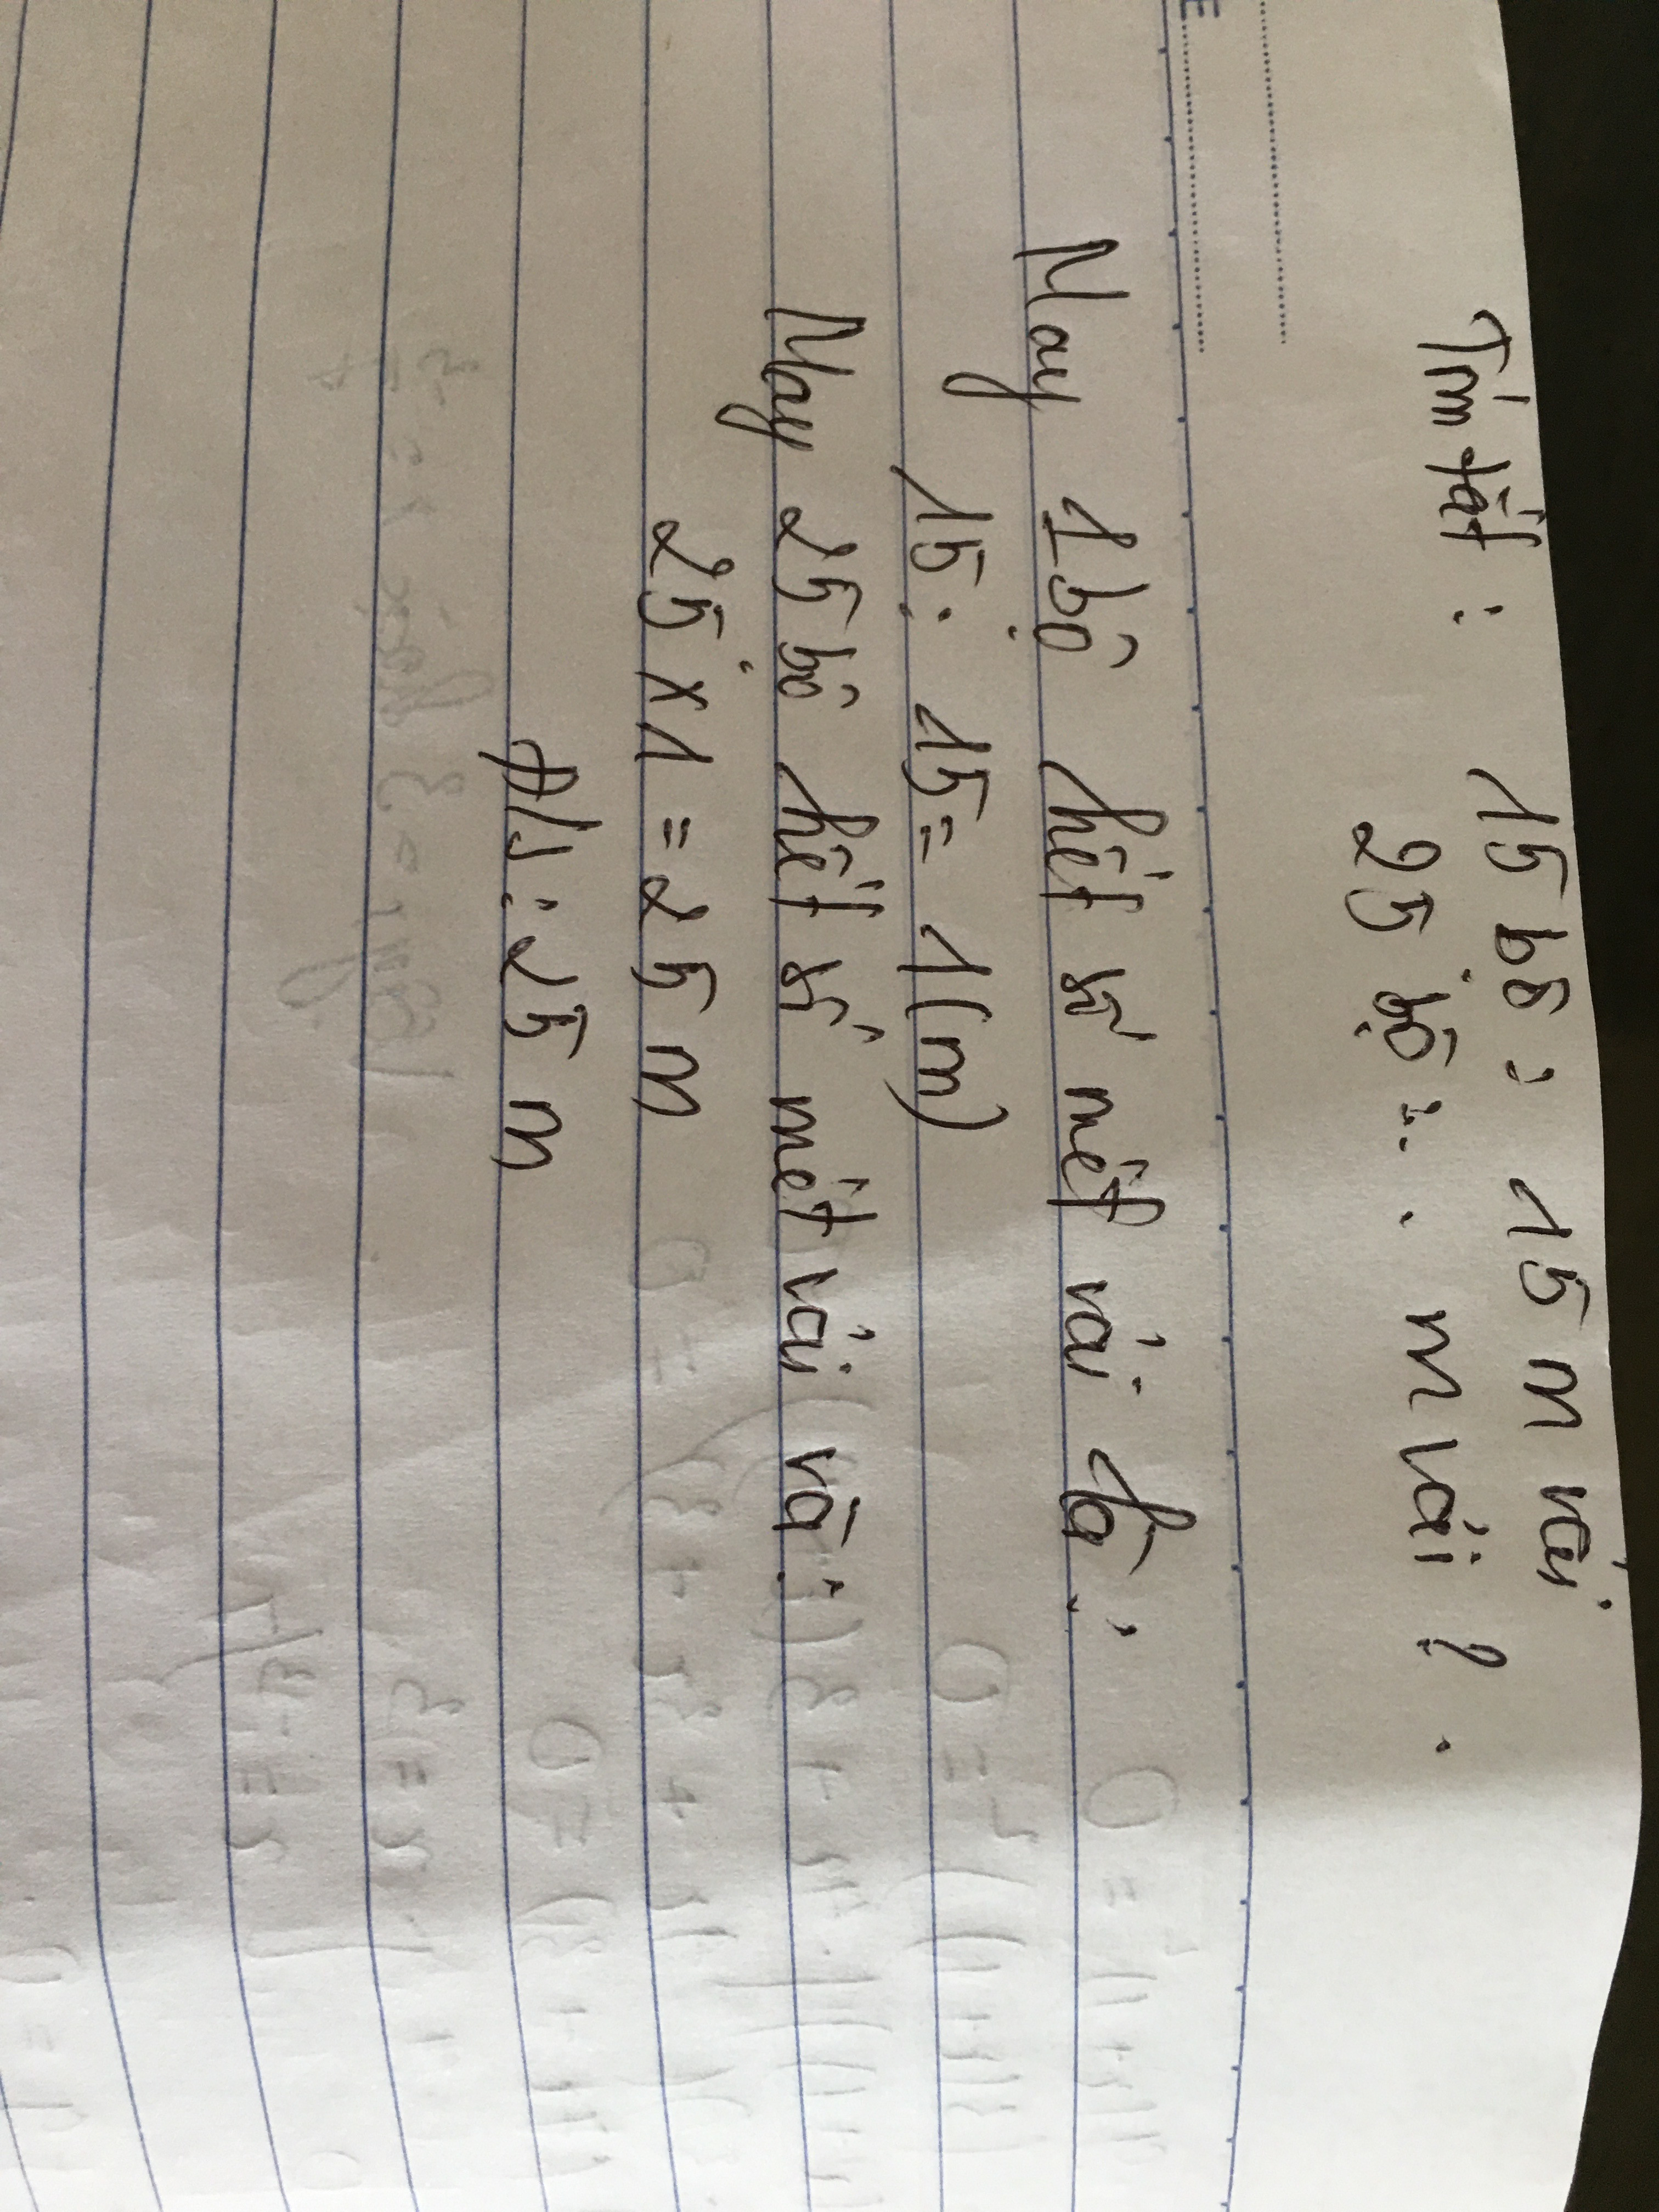 Tóm tắt : 15 bộ : 15 m vải
25 bộ : ... m vải ?
May 1 bộ hết số mét vải là :
15 : 15 = 1 (m)
May 25 bộ hết số mét vải là :
25 x 1 = 25 m
Đ/s : 25 m